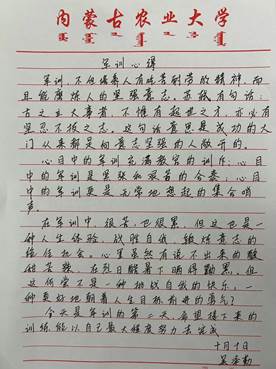 内蒙古农业大学
军训心得
军训,不但培养人有吃苦耐劳的精神,而
且能磨炼人的坚强意志。苏轼有句话:
古之立大事者,不惟有超世之才,亦必有
坚忍不拔之志。这句话意思是成功的大
门从来都是向意志坚强的人敞开的。
心目中的军训充满教官的训斥;心目
中的军训是紧张和艰苦的合奏;心目
中的军训更是无常地想起的集合哨
声。
在军训中,很苦,也很累,但这也是一
种人生体验,战胜自我,锻炼意志的
最佳机会。心里虽然有说不出来的酸
甜苦辣,在烈日酷暑下晒得黝黑,但
这何尝不是一种挑战自我的快乐,一
种更好地朝着人生目标前进的勇气?
今天是军训的第二天,希望接下来的
训练能以自己最大程度努力去完成
十月十日